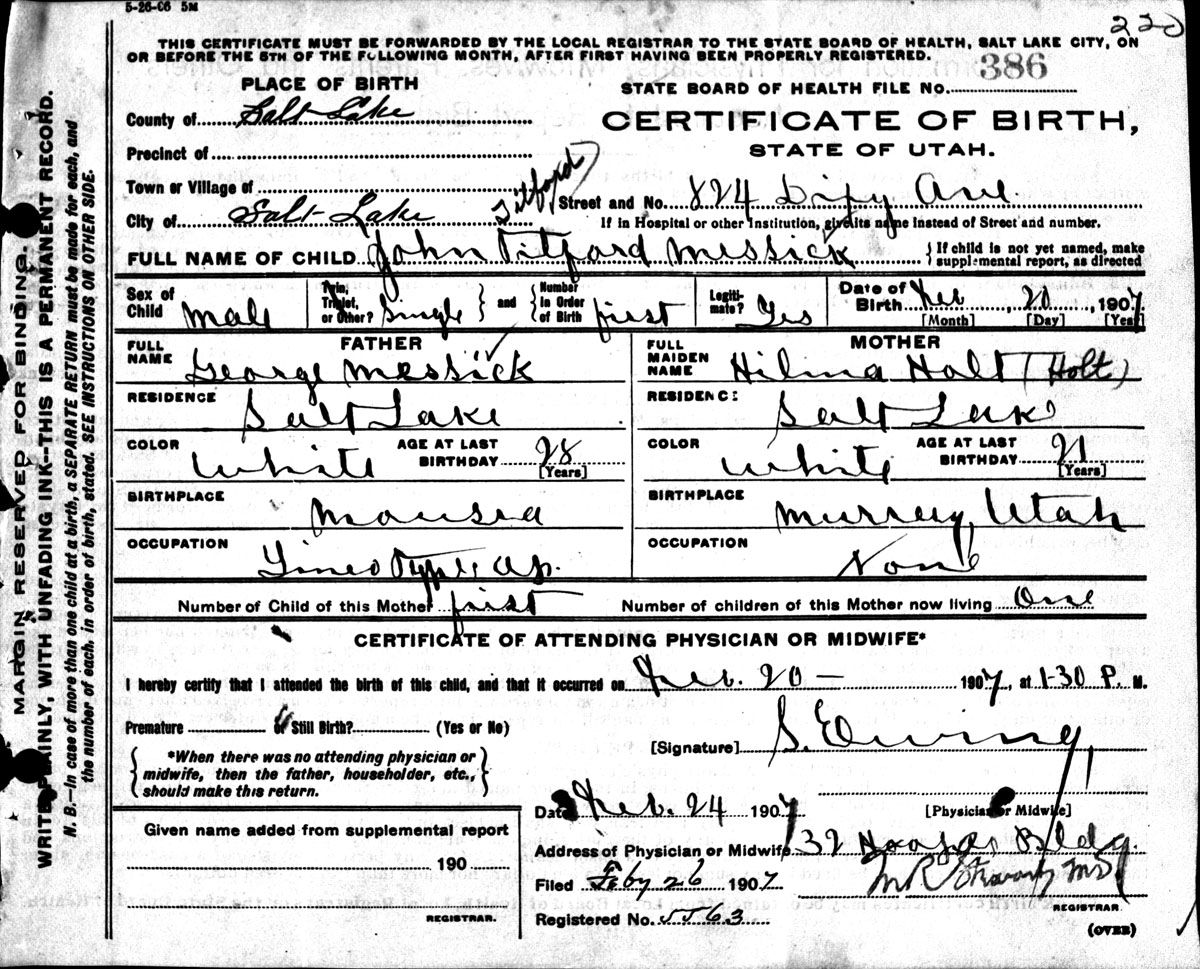 5-26-06 5M
220
THIS CERTIFICATE MUST BE FORWARDED BY THE LOCAL REGISTRAR TO THE STATE BOARD OF HEALTH, SALT LAKE CITY, ON
OR BEFORE THE 5TH OF THE FOLLOWING MONTH, AFTER FIRST HAVING BEEN PROPERLY REGISTERED.
PLACE OF BIRTH
STATE BOARD OF HEALTH FILE NO. 386
County of Salt Lake
CERTIFICATE OF BIRTH,
STATE OF UTAH.
Precinct of
Town or Village of
Tilford
City of Salt Lake
Street and No. 824 Ave.
If in Hospital or other Institution, give its name instead of Street and number.
FULL NAME OF CHILD John Tilford Messick
{If child is not yet named, make
supplemental report, as directed
Sex of Child Male
Twin, Triplet, or Other? Single
} and {
Number in Order of Birth first
Legitimate? Yes
Date of Birth Feb 20, 1907
[Month] [Day] [Year]
FATHER
FULL NAME George Messick
RESIDENCE Salt Lake
COLOR White
AGE AT LAST BIRTHDAY 28
[Years]
BIRTHPLACE
OCCUPATION Lino Type Op.
MOTHER
FULL MAIDEN NAME Hilma Holt (Holt)
RESIDENCE Salt Lake
COLOR White
AGE AT LAST BIRTHDAY 21
[Years]
BIRTHPLACE Murray, Utah
OCCUPATION None
Number of Child of this Mother first
Number of children of this Mother now living One
CERTIFICATE OF ATTENDING PHYSICIAN OR MIDWIFE*
I hereby certify that I attended the birth of this child, and that it occurred on Feb. 20 — 1907, at 1-30 P. M.
Premature or Still Birth? (Yes or No)
[Signature] S. Ewing,
{*When there was no attending physician or
midwife, then the father, householder, etc.,
should make this return.}
Date Feb. 24 1907
[Physician or Midwife]
Address of Physician or Midwife 132 Hooper Bldg.
Given name added from supplemental report
190
REGISTRAR.
Filed Feby 26 1907
M R M D
REGISTRAR.
Registered No. 5563
(OVER)
MARGIN RESERVED FOR BINDING.
WRITE PLAINLY, WITH UNFADING INK--THIS IS A PERMANENT RECORD.
N. B.—In case of more than one child at a birth, a SEPARATE RETURN must be made for each, and
the number of each, in order of birth, stated. SEE INSTRUCTIONS ON OTHER SIDE.